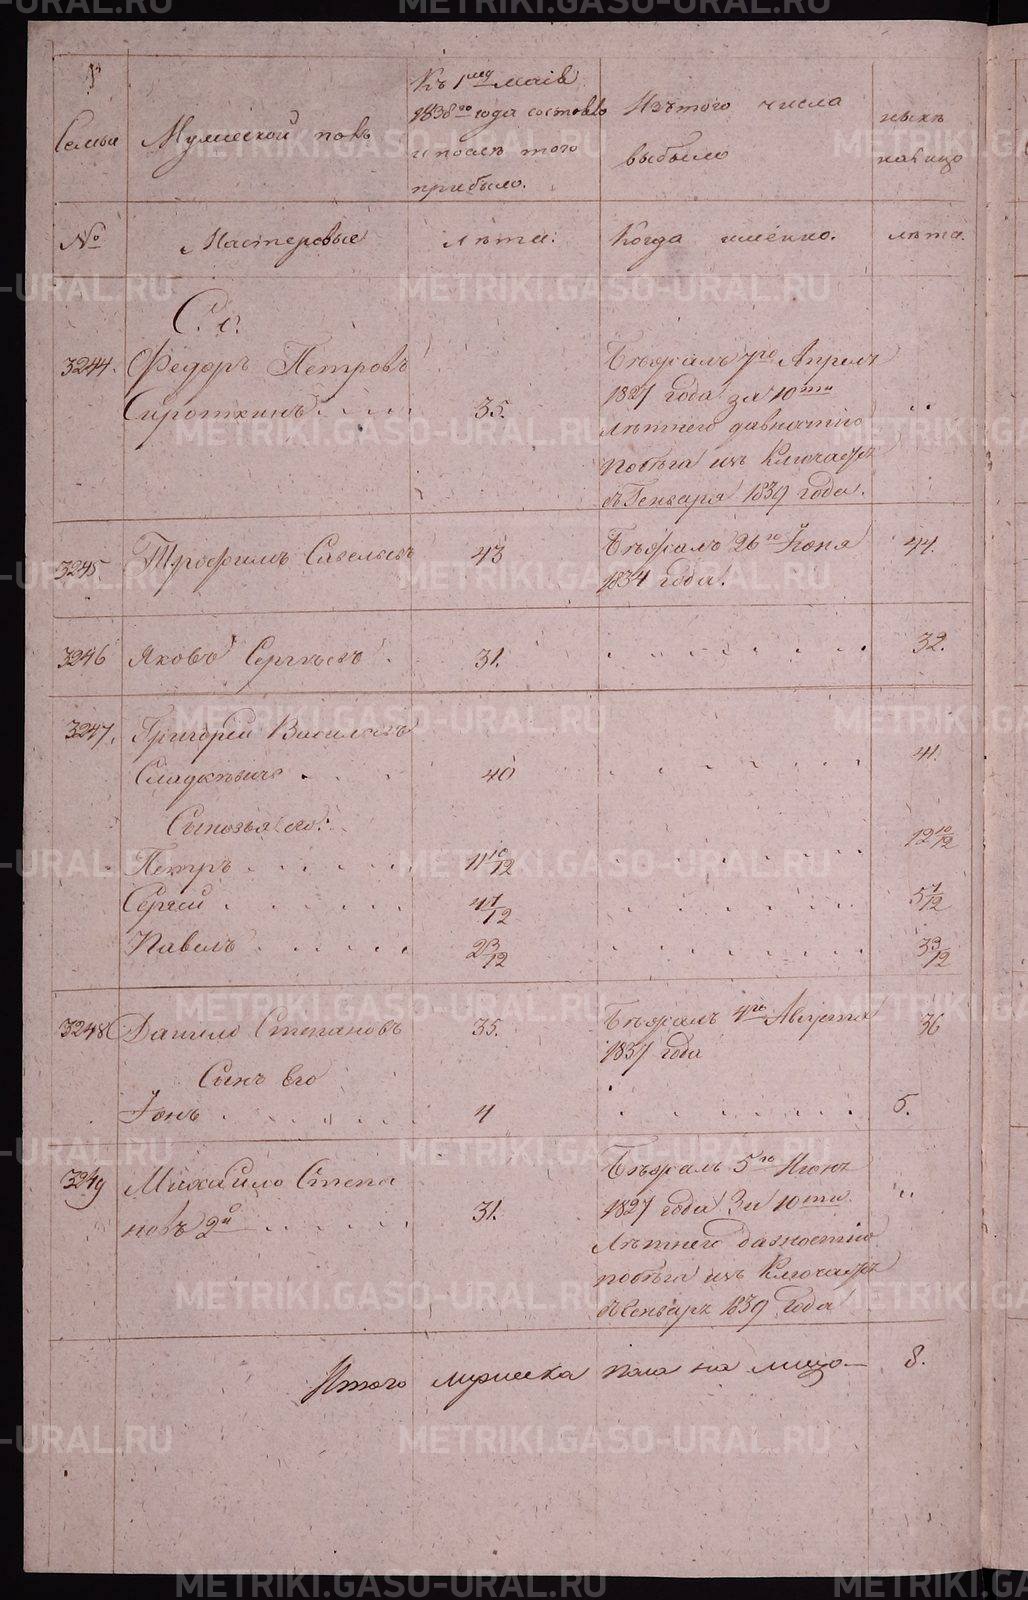 Семьи
Мужеской полъ
Къ 1му Маія
1838го года состояло
и послѣ того
прибыло.
Изъ того числа
выбыло
нынѣ
на лицо
№
Мастеровые
лѣта.
Когда имено.
лѣта.
С. с.
3244. Федоръ Петровъ
Сироткинъ 35.
Бѣжалъ 7го Апреля
1827 года за 10ти
лѣтнею давностію
побѣга изъ
въ Генваря 1839 года.
3245. Трофимъ Савельевъ 43 Бѣжалъ 26го Іюня 44.
1834 года.
3246 Яковъ Сергѣевъ 31. 32.
3247. Григорей Васильевъ
40 41.
Сыновья его:
Петръ 11 10/12 12 10/12
Сергей 4 1/12 5 1/12
Павелъ 2 3/12 3 3/12
3248 Данило Степановъ 35. Бѣжалъ 4го Августа 36
1837 года
Сынъ его
Іонъ 4 5.
3249 Михайло Степа
новъ 2й 31.
Бѣжалъ 5го Іюня
1827 года За 10ти
Лѣтнею давностію
побѣга изъ
1839 года
Итого мужеска пола на лицо 8.
METRIKI.GASO-URAL.RU